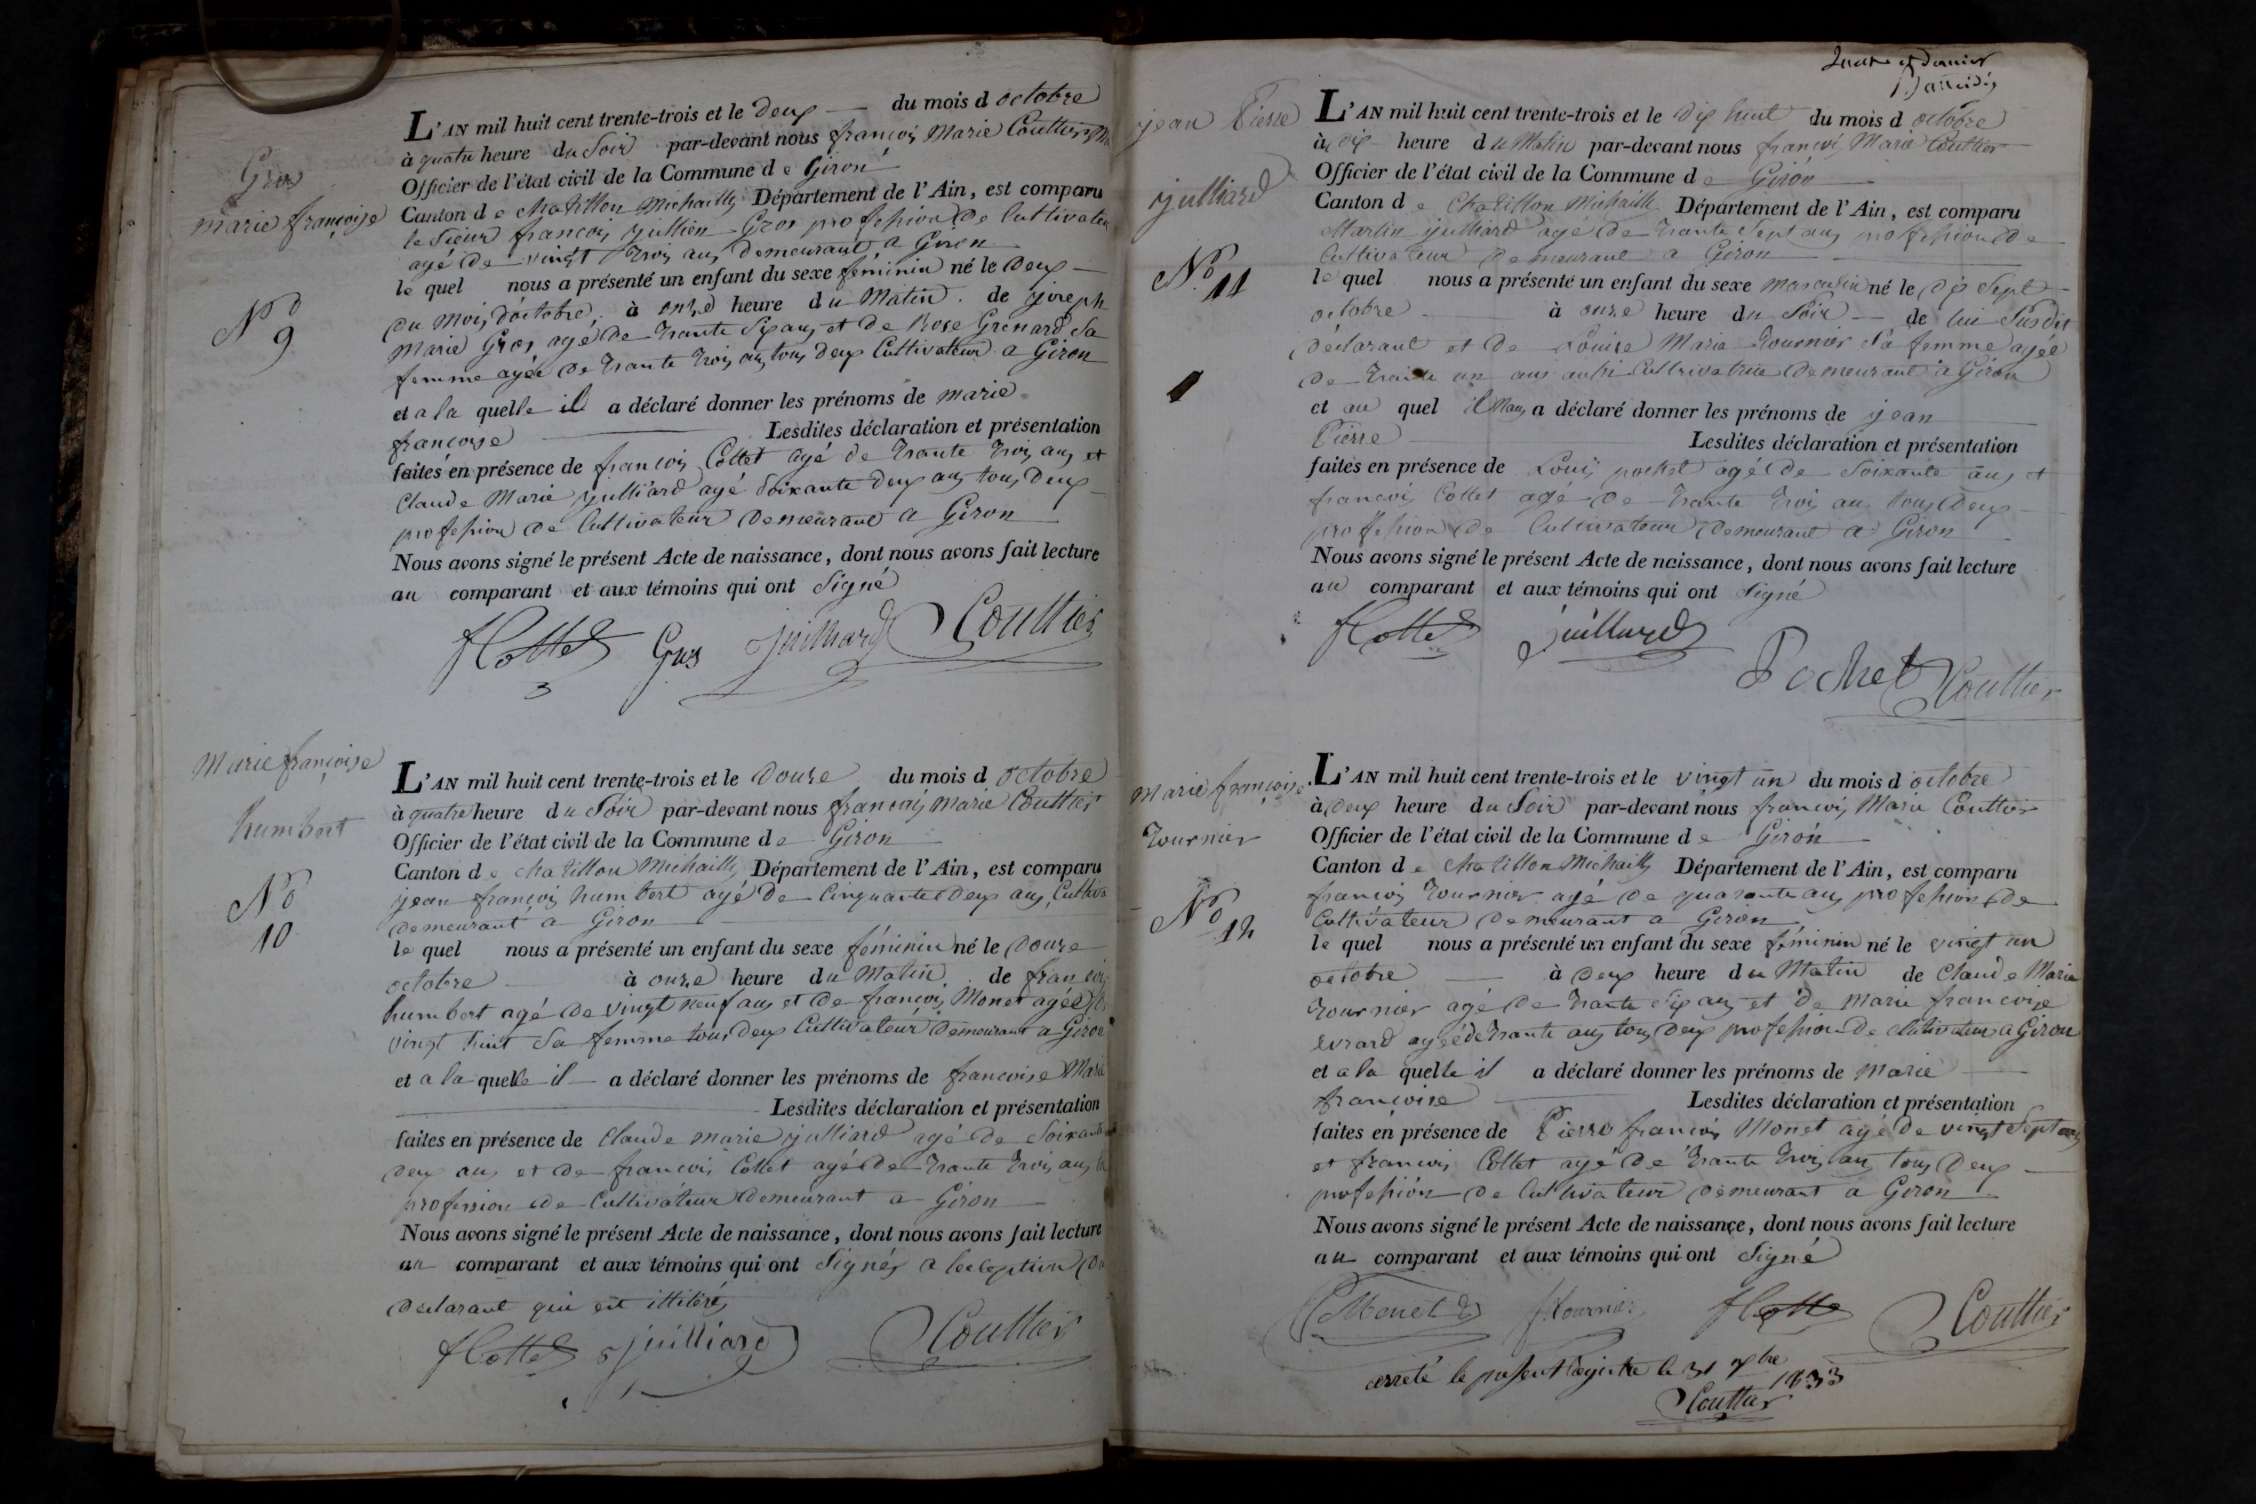 Gros
marie françoise
N° 9
L'AN mil huit cent trente-trois et le deux du mois d octobre
à quatre heure du Soir par-devant nous françois Marie Couttier
Officier de l'état civil de la Commune de Giron
Canton de chatillon Michaille Département de l'Ain, est comparu
le Sieur françois jullien Gros profession de Cultivateur
agé de vingt trois ans demeurant a Giron
le quel nous a présenté un enfant du sexe féminin né le deux
du mois d'octobre, à onze heure du Matin. de joseph
Marie Gros agé de trante Six ans et de Rose Grenard Sa
femme agée de trante trois ans tous deux Cultivateur a Giron
et a la quelle il a déclaré donner les prénoms de marie
françoise Lesdites déclaration et présentation
faites en présence de françois Collet agé de trante trois ans et
Claude Marie julliard agé Soixante deux ans tous deux
profession de Cultivateur demeurant a Giron
Nous avons signé le présent Acte de naissance, dont nous avons fait lecture
au comparant et aux témoins qui ont Signé
fCollet Gros Juilliard Couttier
Marie françoise
humbert
N° 10
L'AN mil huit cent trente-trois et le douze du mois d octobre
à quatre heure du Soir par-devant nous françois Marie Couttier
Officier de l'état civil de la Commune de Giron
Canton de chatillon Michaille Département de l'Ain, est comparu
jean françois humbert agé de Cinquante deux ans, Cultiva
demeurant a Giron
le quel nous a présenté un enfant du sexe féminin né le douze
octobre à onze heure du Matin de françois
humbert agé de vingt neuf ans et de françois Monet agée de
vingt huit Sa femme tous deux Cultivateur demeurant a Giron
et a la quelle il a déclaré donner les prénoms de francoise Marie
Lesdites déclaration et présentation
faites en présence de Claude marie julliard agé de Soixante
deux ans et de francois Collet agé de trante trois ans
profession de Cultivateur demeurant a Giron
Nous avons signé le présent Acte de naissance, dont nous avons fait lecture
au comparant et aux témoins qui ont Signés a lexception du
déclarant qui est illitéré
fCollet Juilliard Couttier
quatre et dernier
jean Pierre
julliard
N° 11
L'AN mil huit cent trente-trois et le dix huit du mois d octobre
à dix heure du Matin par-devant nous francois Marie Couttier
Officier de l'état civil de la Commune de Giron
Canton de Chatillon Michaille Département de l'Ain, est comparu
Martin julliard agé de trante Sept ans profession de
Cultivateur demeurant a Giron
le quel nous a présenté un enfant du sexe masculin né le dix Sept
octobre à onze heure du Soir de lui Susdit
déclarant et de Louise Marie Tournier Sa femme agée
de trante un ans aussi Cultivatrice demeurant a Giron
et au quel il a déclaré donner les prénoms de jean
Pierre Lesdites déclaration et présentation
faites en présence de Louis pochet agé de Soixante ans et
francois Collet agé de trante trois ans tous deux
profession de Cultivateur demeurant a Giron
Nous avons signé le présent Acte de naissance, dont nous avons fait lecture
au comparant et aux témoins qui ont Signé
fCollet Juilliard
Pochet Couttier
Marie françoise
Tournier
N° 12
L'AN mil huit cent trente-trois et le vingt un du mois d octobre
à deux heure du Soir par-devant nous francois Marie Couttier
Officier de l'état civil de la Commune de Giron
Canton de Chatillon Michaille Département de l'Ain, est comparu
francois Tournier agé de quarante ans profession de
Cultivateur demeurant a Giron
le quel nous a présenté un enfant du sexe féminin né le vingt un
octobre à deux heure du Matin de Claude Marie
Tournier agé de trante Six ans et de Marie francoise
Evrard agéé de trante ans tous deux profession de Cultivateur a Giron
et a la quelle il a déclaré donner les prénoms de Marie
francoise Lesdites déclaration et présentation
faites en présence de Pierre francois Monet agé de vingt Sept ans
et francois Collet agé de trante trois ans tous deux
profession de Cultivateur demeurant a Giron
Nous avons signé le présent Acte de naissance, dont nous avons fait lecture
au comparant et aux témoins qui ont Signé
Monet fTournier fCollet Couttier
arrêté le présent Registre le 31 Xbre
1833
Couttier